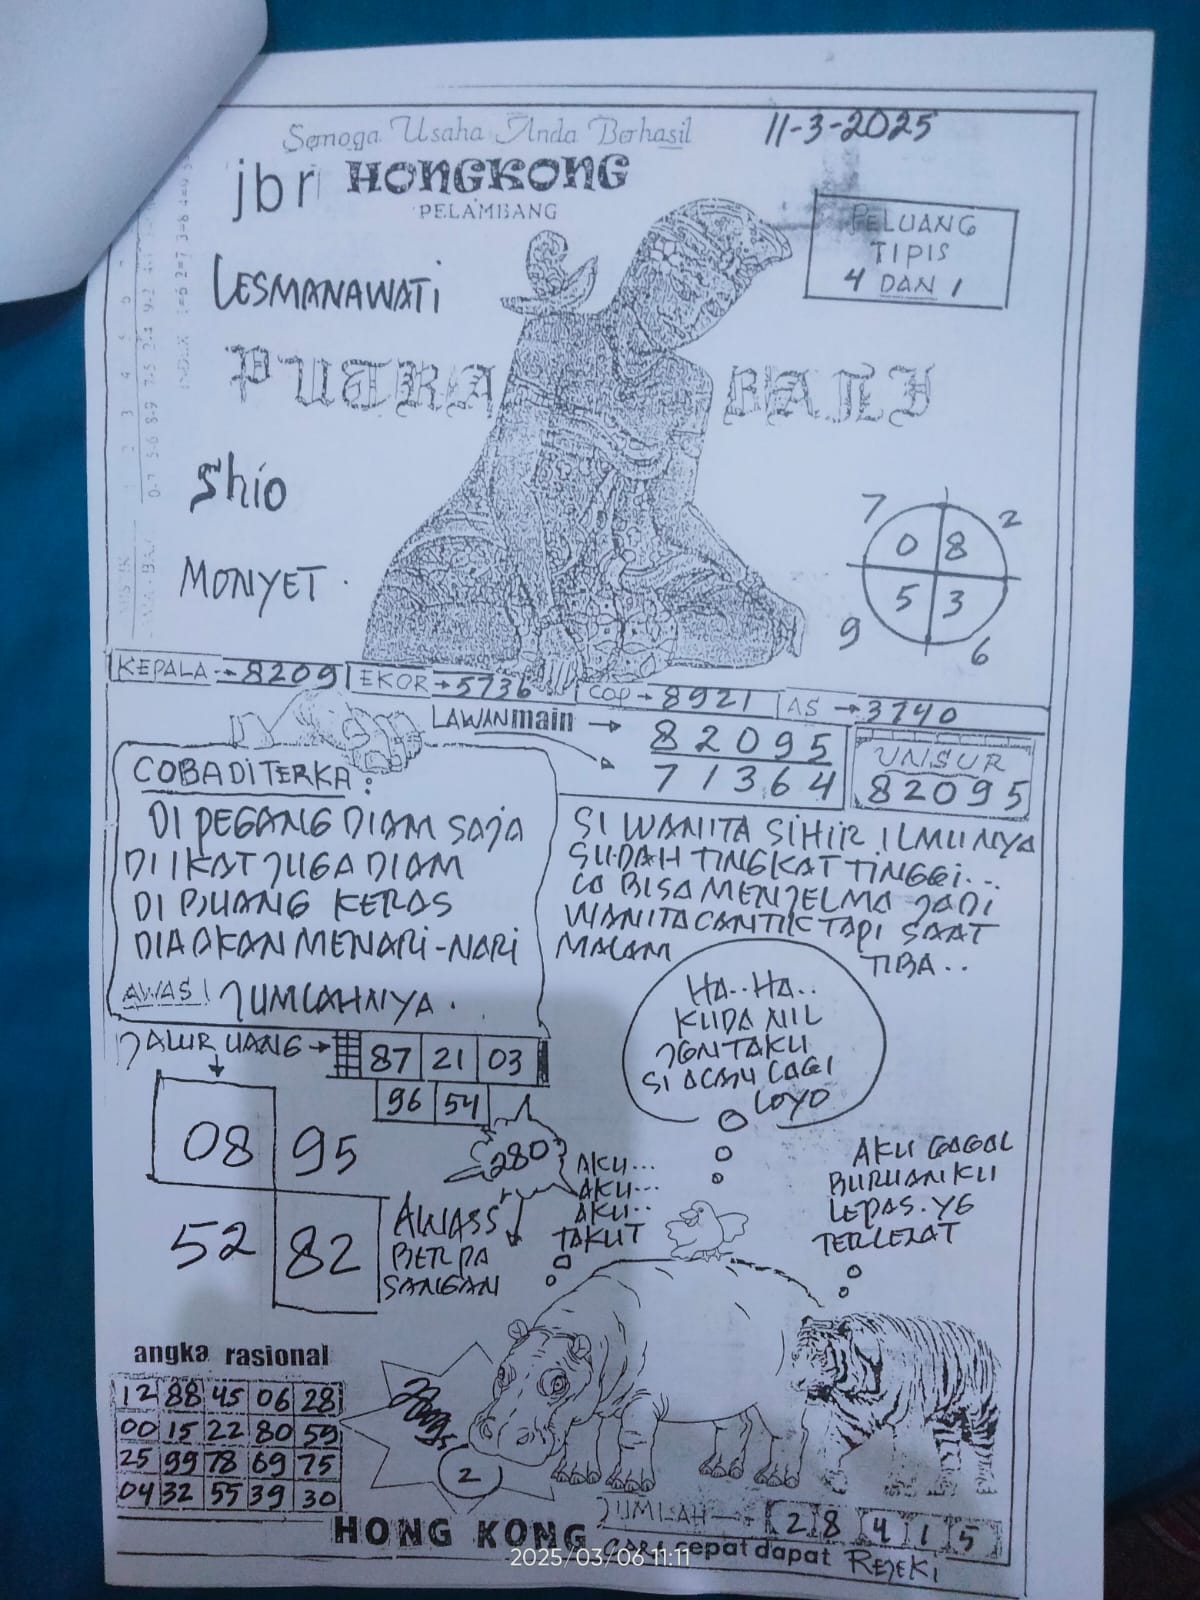 Semoga Usaha Anda Berhasil
11-3-2025
jbr HONGKONG
PELAMBANG
PELUANG
TIPIS
4 DAN 1
LESMANAWATI
PUTRA BALI
Shio
MONYET
7 2
0 8
5 3
9 6
KEPALA → 8209 EKOR → 5736 COP → 8921 AS → 3740
LAWAN main → 82095
71364
UNSUR
82095
COBA DI TERKA :
DI PEGANG DIAM SAJA
DI IKAT JUGA DIAM
DI BUANG KERAS
DIA AKAN MENARI-NARI
AWAS! JUMLAHNYA.
SI WANITA SIHIR ILMUNYA
SUDAH TINGKAT TINGGI...
CO BISA MENJELMA JADI
WANITA CANTIK TAPI SAAT
MALAM TIBA..
HA..HA..
KUDA NIL
JGNTAKU
SI ACAY LAGI
LOYO
JALUR UANG → 87 21 03
96 54
08 95
52 82
280
AWASS
BERPA
SANGAN
AKU...
AKU...
AKU..
TAKUT
AKU GAGAL
BURUANKU
LEPAS. YG
TERLEZAT
angka rasional
12 88 45 06 28
00 15 22 80 59
25 99 78 69 75
04 32 55 39 30
2
JUMLAH → 2 8 4 1 5
HONG KONG
cepat dapat REJEKI
2025/03/06 11:11